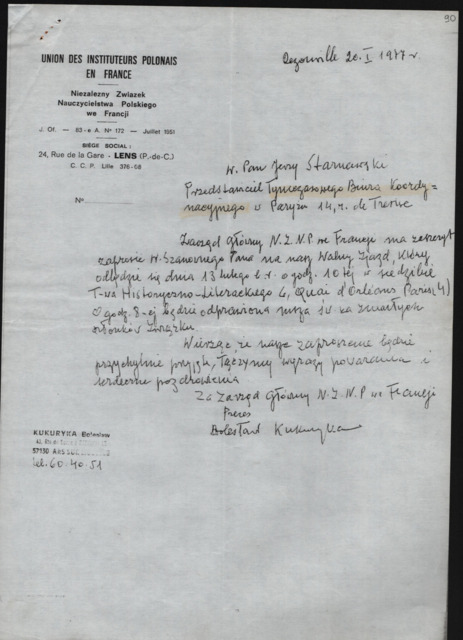 90
UNION DES INSTITUTEURS POLONAIS
EN FRANCE
Niezalezny Zwiazek
Nauczycielstwa Polskiego
we Francji
J. Of. — 83-e A. N° 172 — Juillet 1951
SIÈGE SOCIAL :
24, Rue de la Gare - LENS (P.-de-C.)
C. C. P. Lille 376-68
N°
20.I 1977 r.
W. Pan Jerzy Starnawski
Przedstawiciel Tymczasowego Biura Koordy=
nacyjnego w Paryżu 14, r. de
Zarząd Główny N.Z.N.P. we Francji ma zaszczyt
zaprosić W. Szanownego Pana na nasz Walny Zjazd, który
odbędzie się dnia 13 lutego b.r. o godz. 10tej w siedzibie
T-wa Historyczno-Literackiego 6, Quai d'Orléans Paris (4)
O godz. 8-ej będzie odprawiona msza św. za zmarłych
członków Związku.
Wierząc że nasze zaproszenie będzie
przychylnie przyjęte, łączymy wyrazy poważania i
serdeczne pozdrowienia
Za Zarząd Główny N.Z.N.P. we Francji
Prezes
Bolesław Kukuryka
KUKURYKA Boleslaw
57130 ARS
tel. 60.40.51